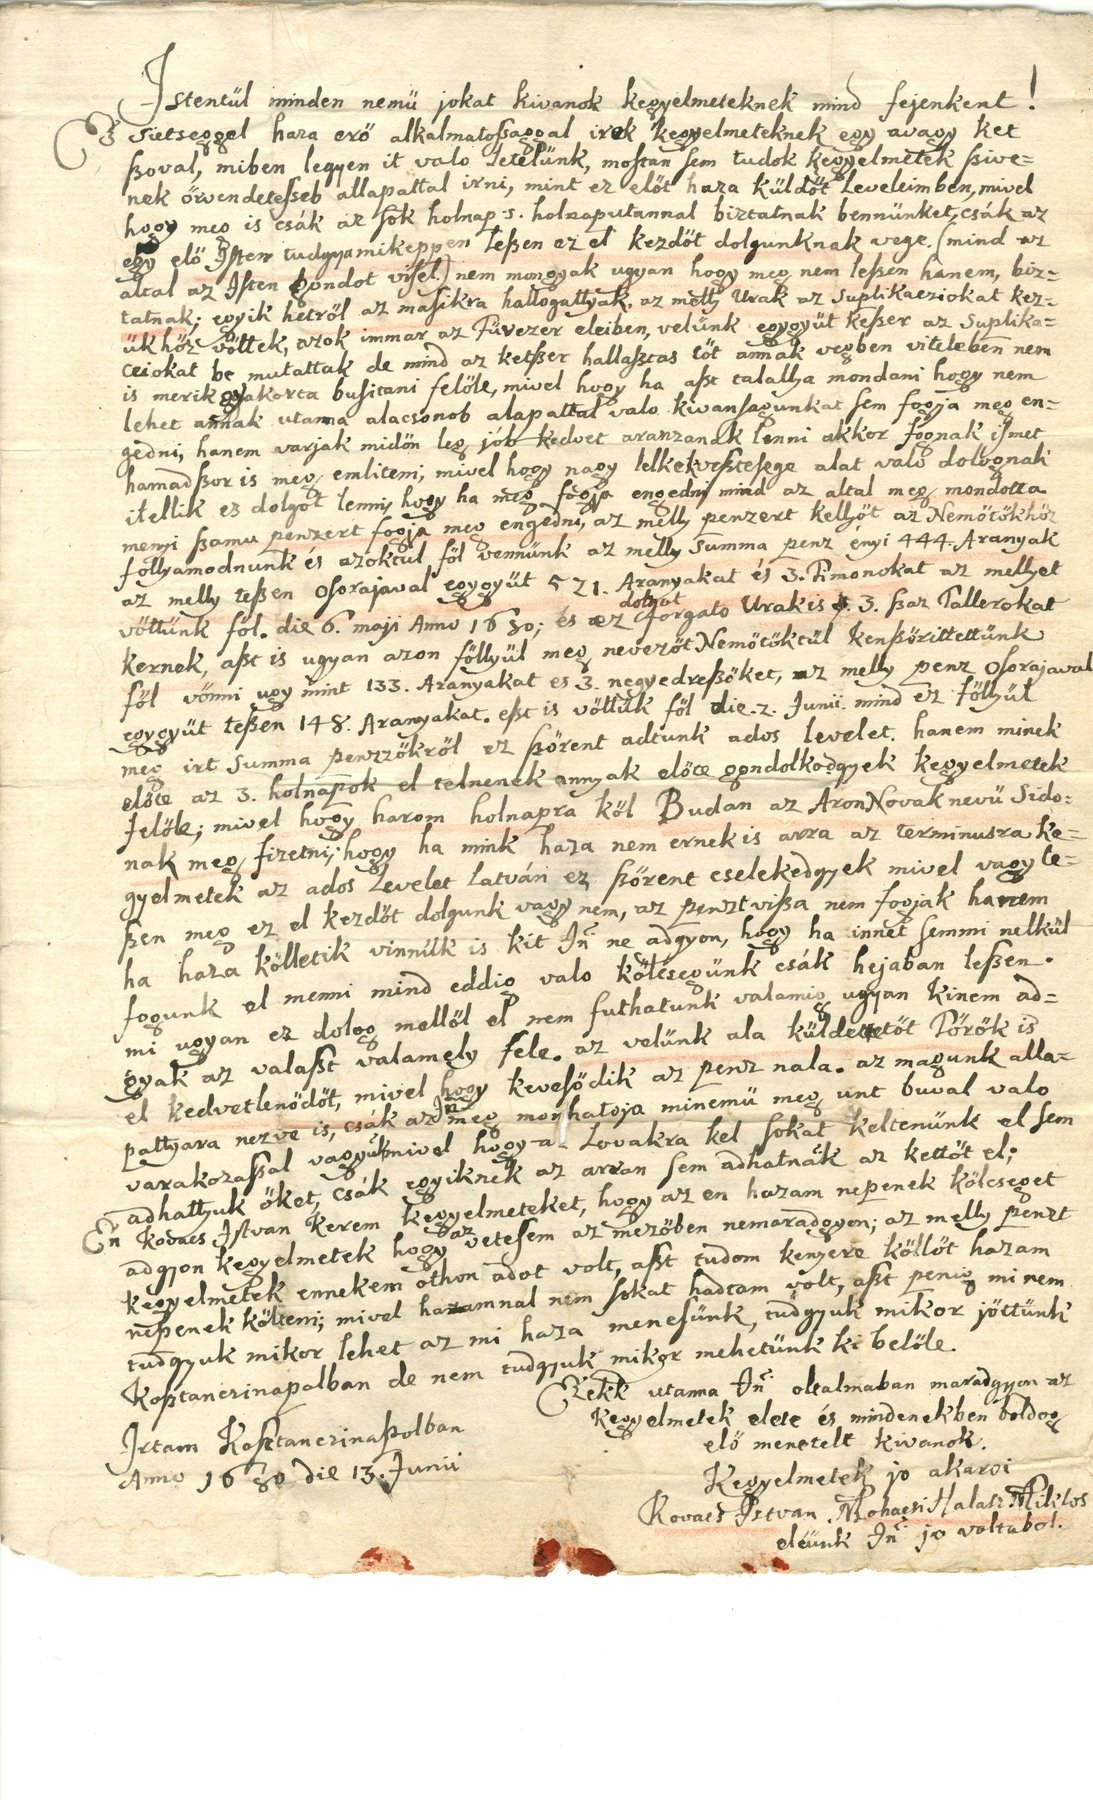 Istentül minden nemü jokat kivanok kegyelmeteknek mind fejenkent!
Ez sietseggel haza erö alkalmatossaggal irok kegyelmeteknek egy avagy ket
szoval, miben legyen it valo letelünk, mostan sem tudok kegyelmetek szive=
nek örvendetesseb allapattal irni, mint ez elöt haza küldöt Leveleimben, mivel
hogy meg is csák az sok holnap s. holnaputannal biztatnak bennünket, csák az
egy elö Isten tudgya mikeppen leszen ez el kezdöt dolgunknak vege. (mind az
altal az Isten gondot visel.) nem mongyak ugyan hogy meg nem leszen hanem, biz=
tatnak; egyik hetröl az masikra hallogattyak, az melly Urak az Suplikatziokat kez=
ükhöz vöttek, azok immar az Füvezer eleiben, velünk egygyüt keszer az Suplika=
ciokot be mutattak de mind az ketszer hallasztas löt annak vegben viteleben nem
is merik gyakorta busitani felöle, mivel hogy ha aszt talallya mondani hogy nem
lehet annak utanna alacsonob alapattal valo kivansagunkat sem fogja meg en=
gedni, hanem varjak midön leg job kedvet aranzanak lenni akkor fognak ismet
hamadszor is meg emliteni; mivel hogy nagy lelkek vesztesege alat valo dolognak
itellik ez dolgot lenni, hogy ha meg fogja engedni mind az altal meg mondotta
menyi szamu penzert fogja meg engedni, az melly penzert kellyöt az Nemötökhöz
follyamodnunk és azoktul föl vennünk az melly Summa penz enyi 444. Aranyak
az melly teszen Osorajaval egygyüt 521. Aranyakat és 3. Timonokat az mellyet
vöttünk föl. die 6. maji Anno 1680; és ez dolgot forgato Urak is 3. szaz Tallerokat
kernek, aszt is ugyan azon föllyül meg nevezöt Nemötöktül kenszörittettünk
föl vönni ugy mint 133. Aranyakat es 3. negyedreszöket, az melly penz Osorajaval
egygyüt teszen 148. Aranyakat. eszt is vöttük föl die. 2. Junii. mind ez föllyül
meg irt Summa penzzökröl ez szörent adtunk ados levelet. hanem minek
elöte az 3. holnapok el telnenek annyak elöte gondolkodgyek kegyelmetek
felöle; mivel hogy harom holnapra köl Budan az Aron Novak nevü Sido=
nak meg fizetni; hogy ha mink haza nem ernek is arra az terminusra ke=
gyelmetek az ados Levelet Latván ez szörent cselekedgyek mivel vagy le=
szen meg ez el kezdöt dolgunk vagy nem, az penzt visza nem fogjak hanem
ha haza kölletik vinnük is kit Jñ ne adgyon, hogy ha innet semmi nelkül
fogunk el menni mind eddig valo költsegünk csák hejaban leszen.
mi ugyan ez dolog mellöl el nem futhatunk valamig ugyan kinem ad=
gyak az valaszt valamely fele. az velünk ala küldettetöt Törok is
el kedvetlenödöt, mivel hogy kevesödik az penz nala. az magunk alla=
pattyara nezve is, csák az Jñ meg monhatoja minemü meg unt buval valo
varakozassal vagyük mivel hogy a Lovakra kel sokat keltenünk el sem
adhattyuk öket, csák egyiknek az arran sem adhatnák az kettöt el;
En Kovacs Istvan kerem kegyelmeteket, hogy az en hazam nepenek kölcseget
adgyon kegyelmetek hogy az vetesem az mezöben nemaradgyon; az melly penzt
kegyelmetek ennekem othon adot volt, aszt tudom kenyere köllöt hazam
nepenek költeni; mivel hazamnal nem sokat hadtam volt, aszt penig mi nem
tudgyuk mikor lehet az mi haza menesünk, tudgyuk mikor jöttünk
Kosztanczinapolban de nem tudgyuk mikor mehetünk ki belöle.
Ezekk utanna Jñ: oltalmaban maradgyon az
kegyelmetek elete és mindenekben boldog
elö menetelt kivanok.
Irtam Kosztanczinapolban
Anno 1680 die 13. Junii
Kegyelmetek jo akaroi
Kovacs Istvan, Mohacsi Halasz Miklos
eleünk Jñ: jo voltabol.